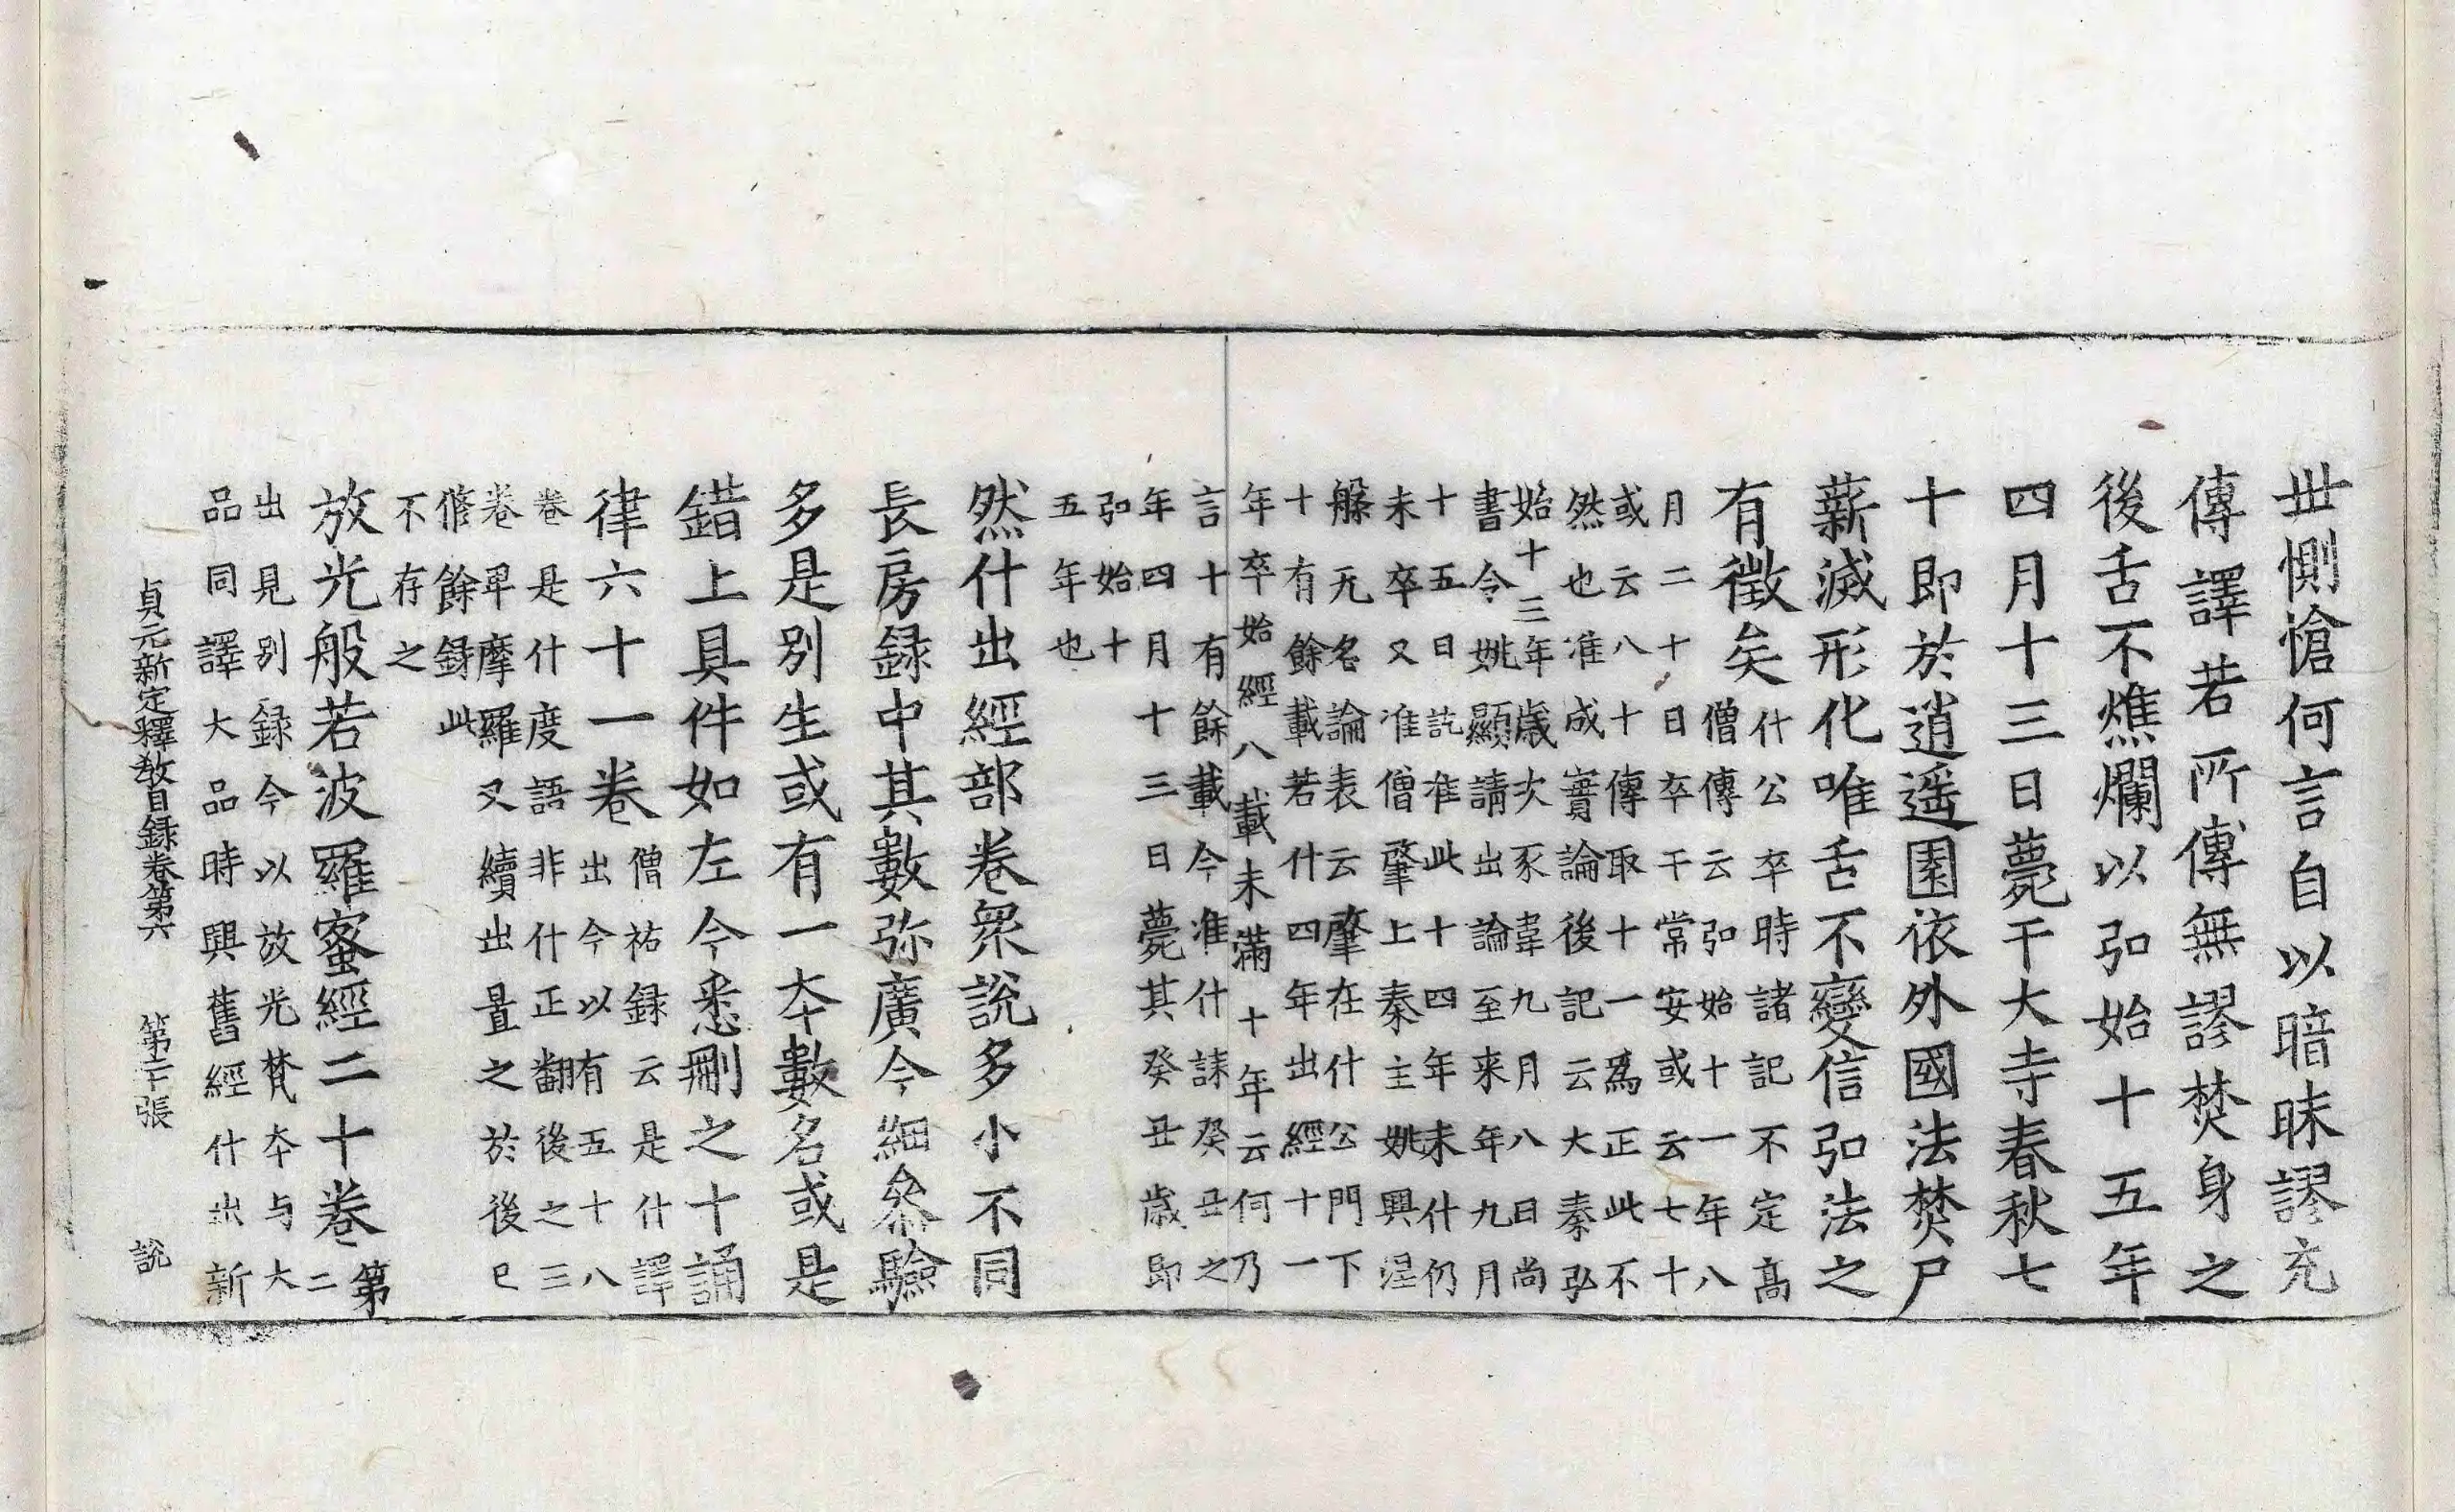 世惻愴何言自以暗昧謬充
傳譯若所傳無謬焚身之
後舌不燋爛以弘始十五年
四月十三日薨于大寺春秋七
十即於逍遥園依外國法焚尸
薪滅形化唯舌不變信弘法之
有徵矣
什公卒時諸記不定高
僧傳云弘始十一年八
月二十日卒于常安或云七十
或云八十傳取十一為正此不
然也准成實論後記云大秦弘
始十三年歲次豕韋九月八日尚
書令姚顯請出論至来年九月
十五日訖准此十四年末什仍
未卒又准僧肇上秦主姚興涅
槃无名論表云肇在什公門下
十有餘載若什四年出經十一
年卒始經八載未滿十年云何乃
言十有餘載今准什誄癸丑之
年四月十三日薨其癸丑歲即
弘始十
五年也
然什出經部卷衆說多小不同
長房録中其數弥廣今細叅驗
多是別生或有一本數名或是
錯上具件如左今悉刪之十誦
律六十一卷
僧祐録云是什譯
出今以有五十八
卷是什度語非什正翻後之三
卷卑摩羅叉續出置之於後已
脩餘録此
不存之
放光般若波羅蜜經二十卷
第
二
出見別録今以放光梵本与大
品同譯大品時興舊經什出新
貞元新定釋教目録卷第六 第二十張 說